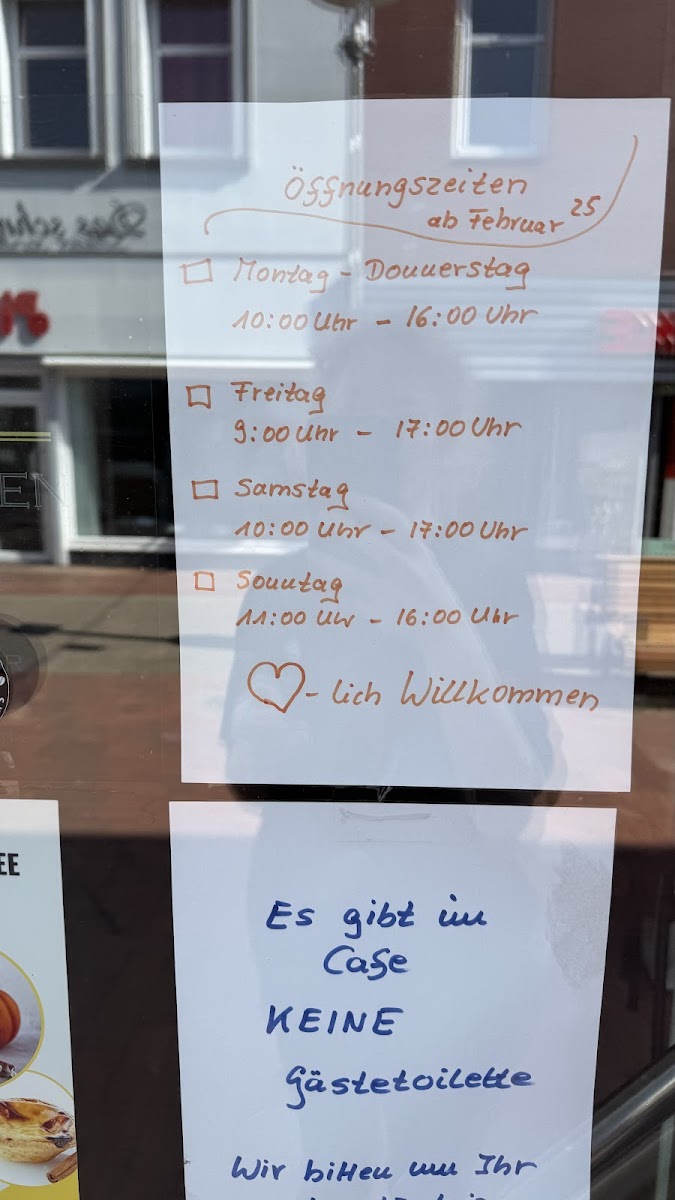 Öffnungszeiten
ab Februar 25
Montag - Donnerstag
10:00 Uhr - 16:00 Uhr
Freitag
9:00 Uhr - 17:00 Uhr
Samstag
10:00 Uhr - 17:00 Uhr
Sonntag
11:00 Uhr - 16:00 Uhr
♡-lich Willkommen
EN
EE
Es gibt im
Cafe
KEINE
Gästetoilette
Wir bitten um Ihr